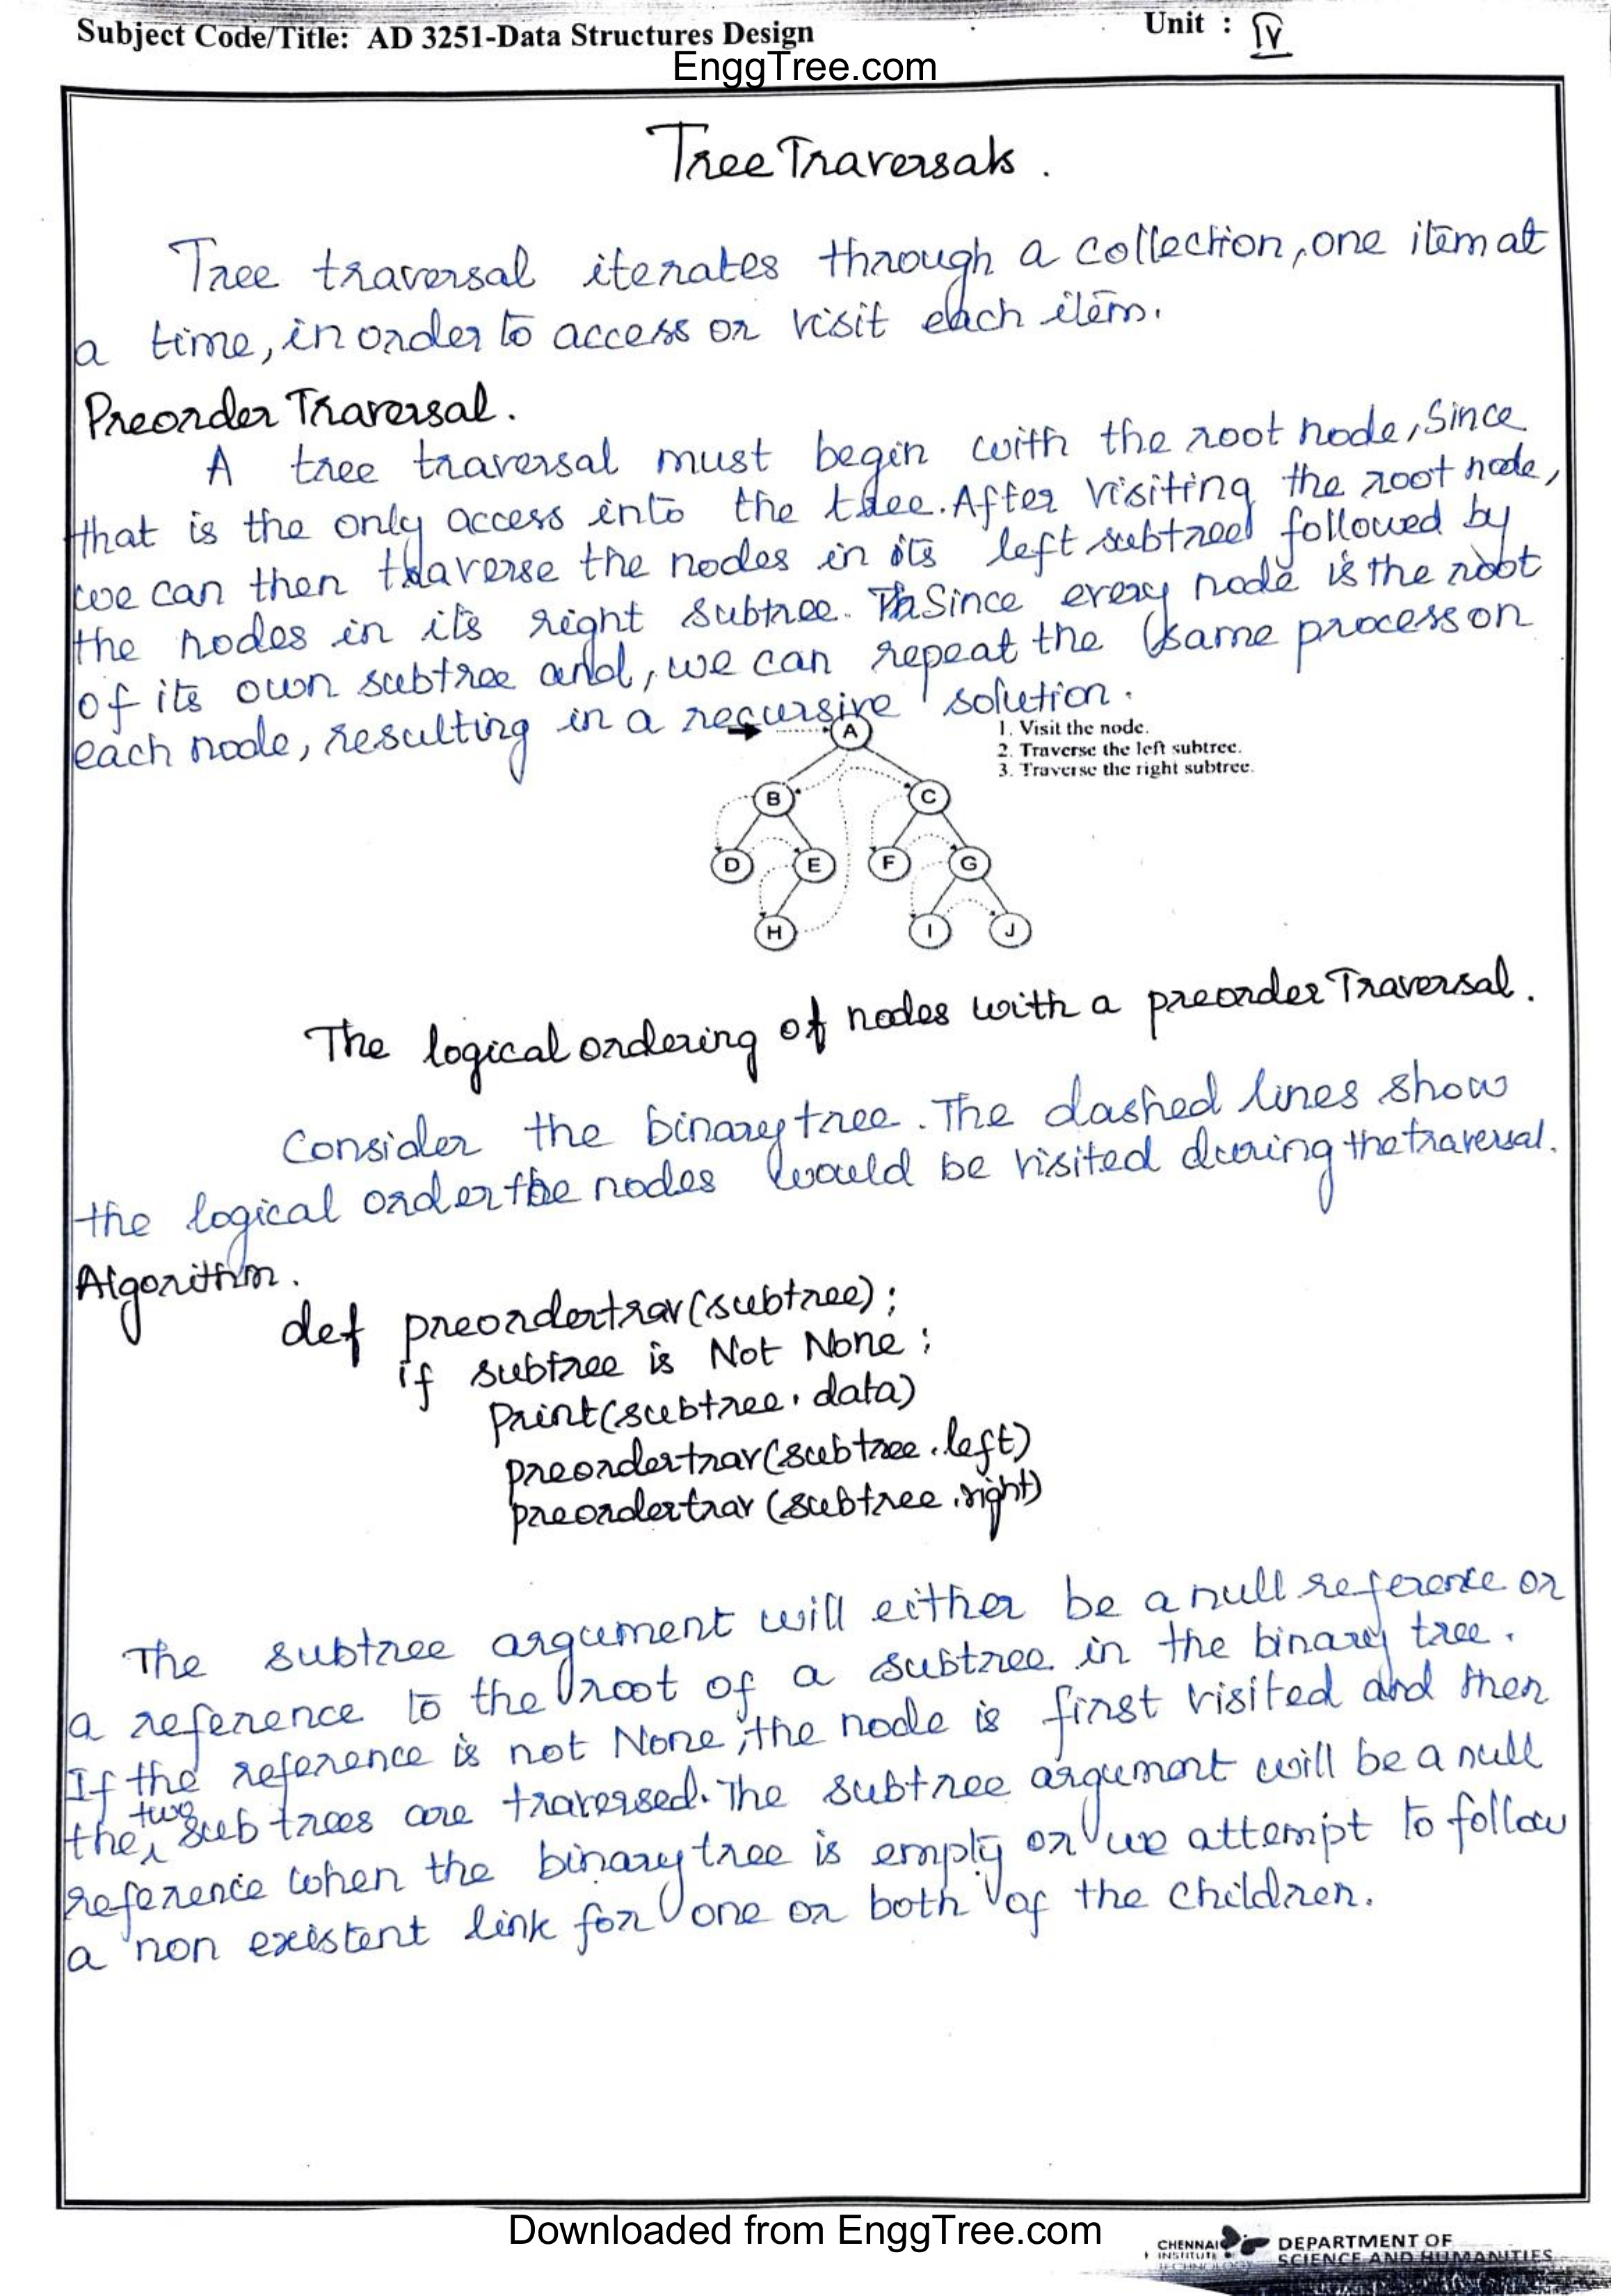 Subject Code/Title: AD 3251-Data Structures Design
Unit : IV
EnggTree.com
Tree Traversals.
Tree traversal iterates through a collection, one item at
a time, in order to access or visit each item.
Preorder Traversal.
A tree traversal must begin with the root node, Since
that is the only access into the tree. After visiting the root node,
we can then traverse the nodes in its left subtree followed by
the nodes in its right subtree. Since every node is the root
of its own subtree and, we can repeat the same process on
each node, resulting in a recursive solution.
A
1. Visit the node.
2. Traverse the left subtree.
3. Traverse the right subtree.
B C
D E F G
H I J
The logical ordering of nodes with a preorder Traversal.
Consider the binary tree. The dashed lines show
the logical order the nodes would be visited during the traversal.
Algorithm.
def preordertrav(subtree);
if subtree is Not None ;
Print(subtree.data)
preordertrav(subtree.left)
preordertrav(subtree.right)
The subtree argument will either be a null reference or
a reference to the root of a subtree in the binary tree.
If the reference is not None, the node is first visited and then
the two sub trees are traversed. The subtree argument will be a null
reference when the binary tree is empty or we attempt to follow
a non existent link for one or both of the children.
Downloaded from EnggTree.com
CHENNAI
INSTITUTE
TECHNOLOGY
DEPARTMENT OF
SCIENCE AND HUMANITIES